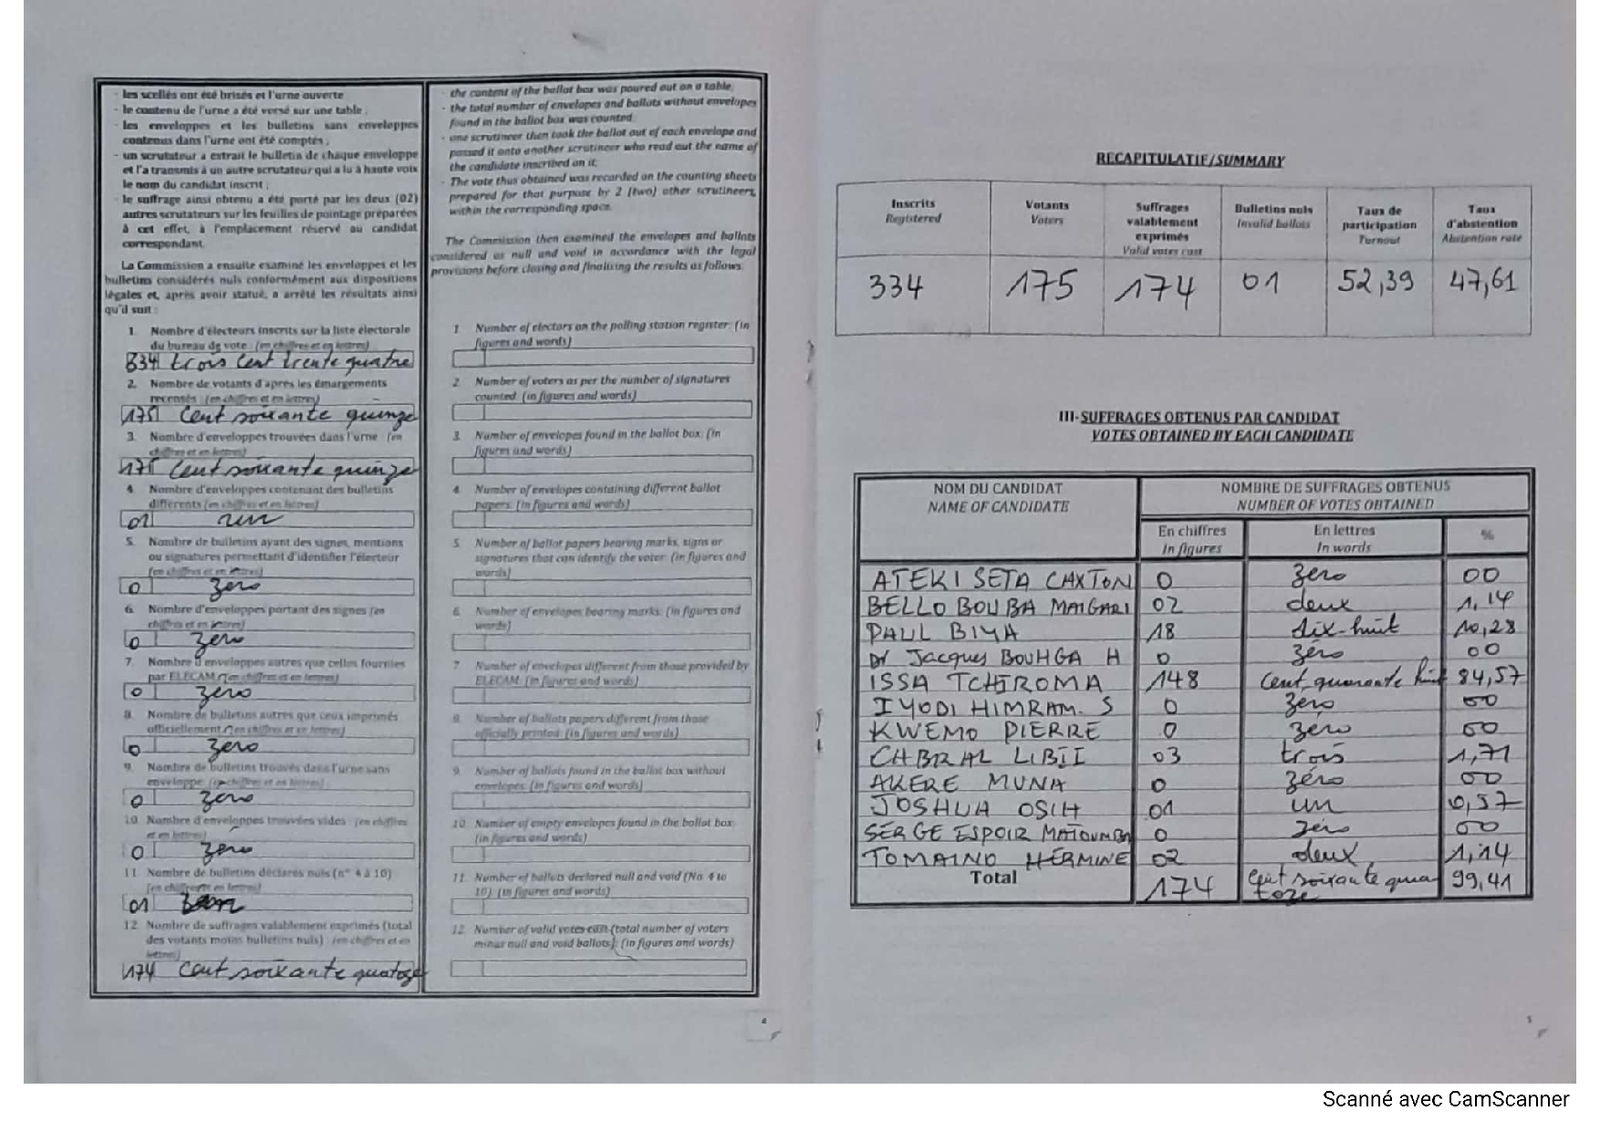 - les scellés ont été brisés et l'urne ouverte
- le contenu de l'urne a été versé sur une table ;
- les enveloppes et les bulletins sans enveloppes
contenus dans l'urne ont été comptés ;
- un scrutateur a extrait le bulletin de chaque enveloppe
et l'a transmis à un autre scrutateur qui a lu à haute voix
le nom du candidat inscrit ;
- le suffrage ainsi obtenu a été porté par les deux (02)
autres scrutateurs sur les feuilles de pointage préparées
à cet effet, à l'emplacement réservé au candidat
correspondant.
La Commission a ensuite examiné les enveloppes et les
bulletins considérés nuls conformément aux dispositions
légales et, après avoir statué, a arrêté les résultats ainsi
qu'il suit :
1. Nombre d'électeurs inscrits sur la liste électorale
du bureau de vote : (en chiffres et en lettres)
334 trois cent trente quatre
2. Nombre de votants d'après les émargements
recensés : (en chiffres et en lettres)
175 Cent soixante quinze
3. Nombre d'enveloppes trouvées dans l'urne : (en
chiffres et en lettres)
175 Cent soixante quinze
4. Nombre d'enveloppes contenant des bulletins
différents (en chiffres et en lettres)
01 un
5. Nombre de bulletins ayant des signes, mentions
ou signatures permettant d'identifier l'électeur
(en chiffres et en lettres)
0 zero
6. Nombre d'enveloppes portant des signes (en
chiffres et en lettres)
0 zero
7. Nombre d'enveloppes autres que celles fournies
par ELECAM (en chiffres et en lettres)
0 zero
8. Nombre de bulletins autres que ceux imprimés
officiellement (en chiffres et en lettres)
0 zero
9. Nombre de bulletins trouvés dans l'urne sans
enveloppe (en chiffres et en lettres)
0 zero
10. Nombre d'enveloppes trouvées vides (en chiffres
et en lettres)
0 zero
11. Nombre de bulletins déclarés nuls (n° 4 à 10)
(en chiffres et en lettres)
01
12. Nombre de suffrages valablement exprimés (total
des votants moins bulletins nuls) : (en chiffres et en
lettres)
174 Cent soixante quatoze
the content of the ballot box was poured out on a table;
- the total number of envelopes and ballots without envelopes
found in the ballot box was counted.
- one scrutineer then took the ballot out of each envelope and
passed it onto another scrutineer who read out the name of
the candidate inscribed on it;
- The vote thus obtained was recorded on the counting sheets
prepared for that purpose by 2 (two) other scrutineers,
within the corresponding space.
The Commission then examined the envelopes and ballots
considered as null and void in accordance with the legal
provisions before closing and finalizing the results as follows:
1. Number of electors on the polling station register: (in
figures and words)
2. Number of voters as per the number of signatures
counted: (in figures and words)
3. Number of envelopes found in the ballot box: (in
figures and words)
4. Number of envelopes containing different ballot
papers: (in figures and words)
5. Number of ballot papers bearing marks, signs or
signatures that can identify the voter: (in figures and
words)
6. Number of envelopes bearing marks: (in figures and
words)
7. Number of envelopes different from those provided by
ELECAM: (in figures and words)
8. Number of ballots papers different from those
officially printed: (in figures and words)
9. Number of ballots found in the ballot box without
envelopes: (in figures and words)
10. Number of empty envelopes found in the ballot box:
(in figures and words)
11. Number of ballots declared null and void (No. 4 to
10) (in figures and words)
12. Number of valid votes cast (total number of voters
minus null and void ballots): (in figures and words)
4
RECAPITULATIF/SUMMARY
Inscrits Registered | Votants Voters | Suffrages valablement exprimés Valid votes cast | Bulletins nuls Invalid ballots | Taux de participation Turnout | Taux d'abstention Abstention rate
334 175 174 01 52,39 47,61
III-SUFFRAGES OBTENUS PAR CANDIDAT
VOTES OBTAINED BY EACH CANDIDATE
NOM DU CANDIDAT NOMBRE DE SUFFRAGES OBTENUS
NAME OF CANDIDATE NUMBER OF VOTES OBTAINED
En chiffres En lettres %
In figures In words
ATEKI SETA CAXTON 0 zero 00
BELLO BOUBA MAIGARI 02 deux 1,14
PAUL BIYA 18 dix-huit 10,28
Dr Jacques BOUHGA H 0 zero 00
ISSA TCHIROMA 148 cent quarante huit 84,57
IYODI HIMRAM. S 0 zero 00
KWEMO PIERRE 0 zéro 00
CABRAL LIBII 03 trois 1,71
AKERE MUNA 0 zéro 00
JOSHUA OSIH 01 un 0,57
SERGE ESPOIR MATOUMBA 0 zéro 00
TOMAINO HERMINE 02 deux 1,14
Total 174 Cent soixante qua 99,41
toze
5
Scanné avec CamScanner